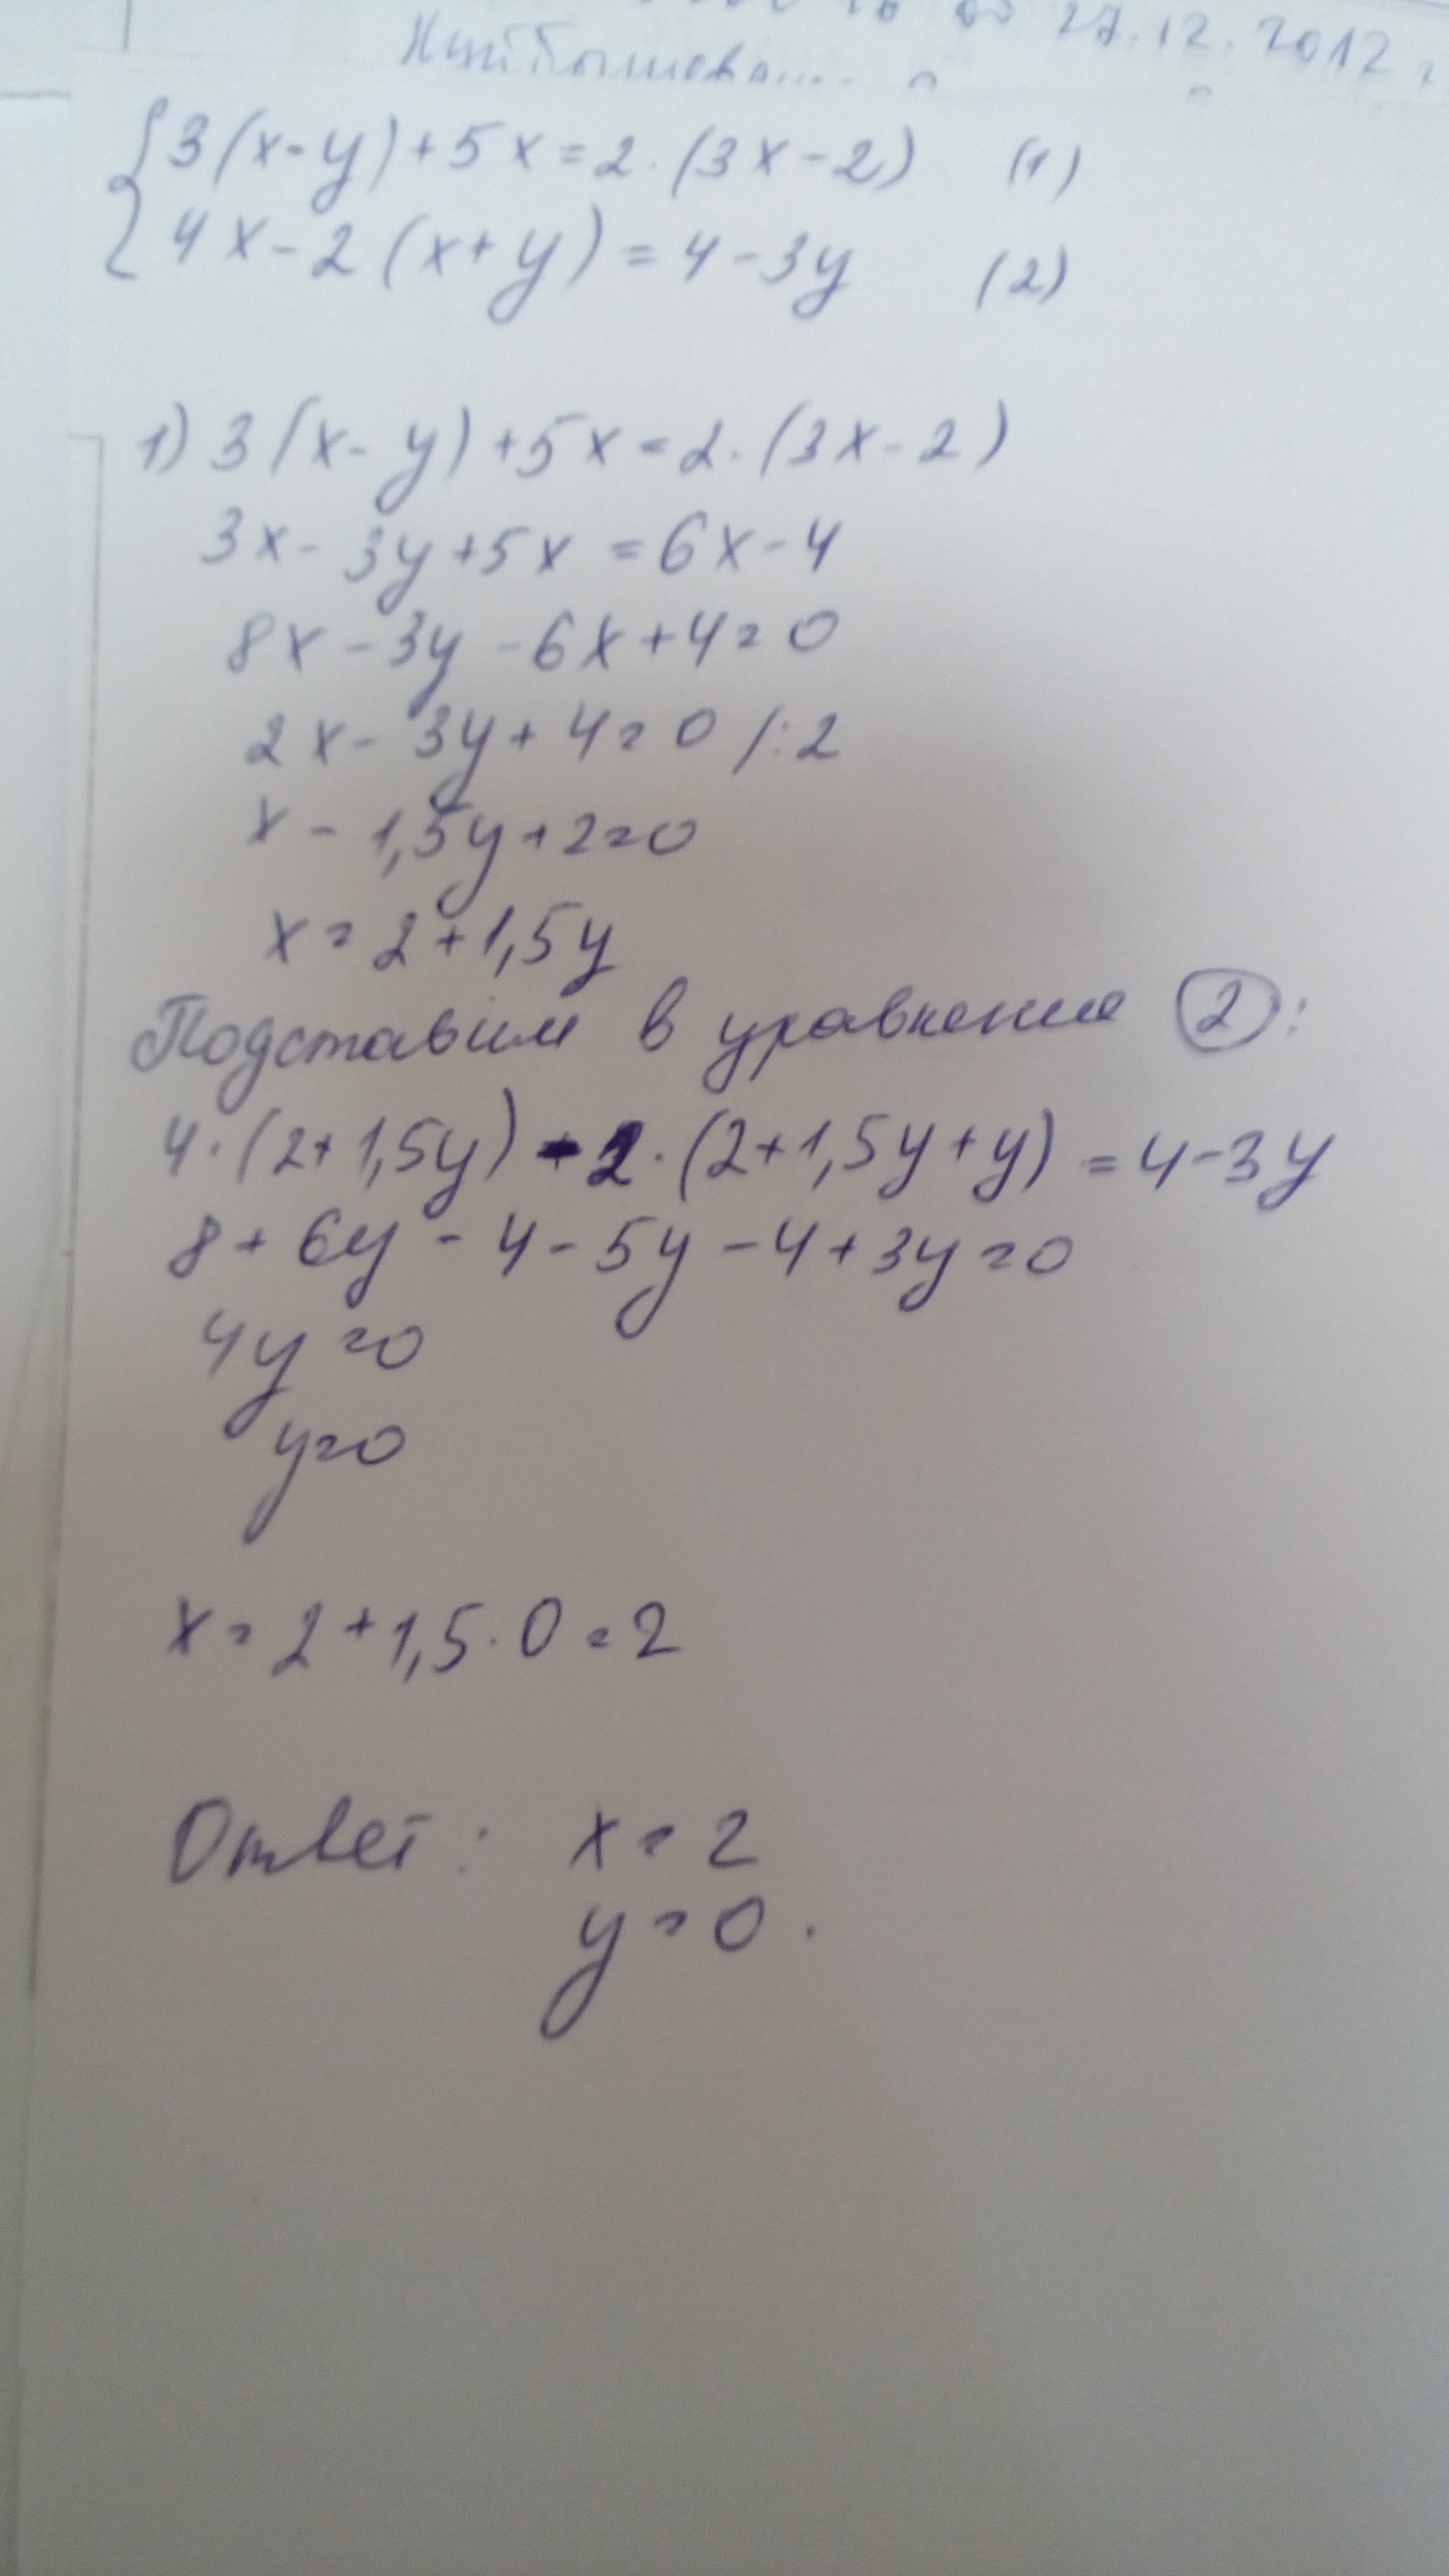 27.12.2012 г
{3(x-y)+5x=2·(3x-2) (1)
4x-2(x+y)=4-3y (2)
1) 3(x-y)+5x=2·(3x-2)
3x-3y+5x=6x-4
8x-3y-6x+4=0
2x-3y+4=0 /:2
x-1,5y+2=0
x=2+1,5y
Подставим в уравнение (2):
4·(2+1,5y)-2·(2+1,5y+y)=4-3y
8+6y-4-5y-4+3y=0
4y=0
y=0
x=2+1,5·0=2
Ответ: x=2
y=0.